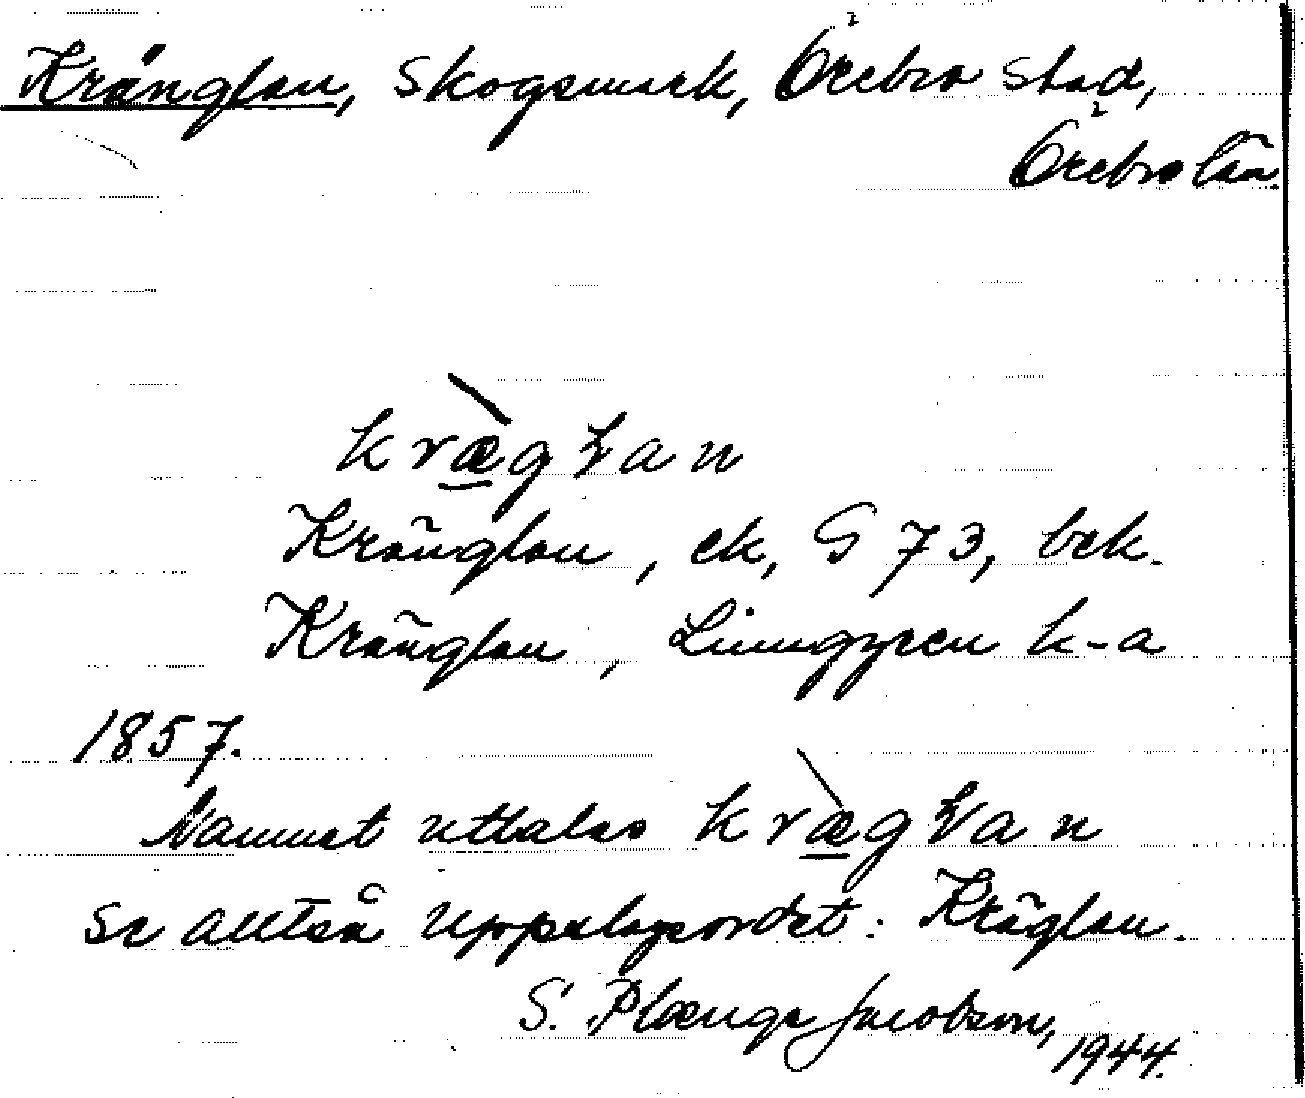 Kränglan, Skogsmark, Örebro stad,
Örebro län.
kræ̀gɫan
Kränglan, ek, G 73, bek.
Kränglan, Ljunggren k-a
1857.
Namnet uttalas kræ̀gɫan
Se alltså uppslagsordet: Kräglan.
S. Plænge Jacobson,
1944.